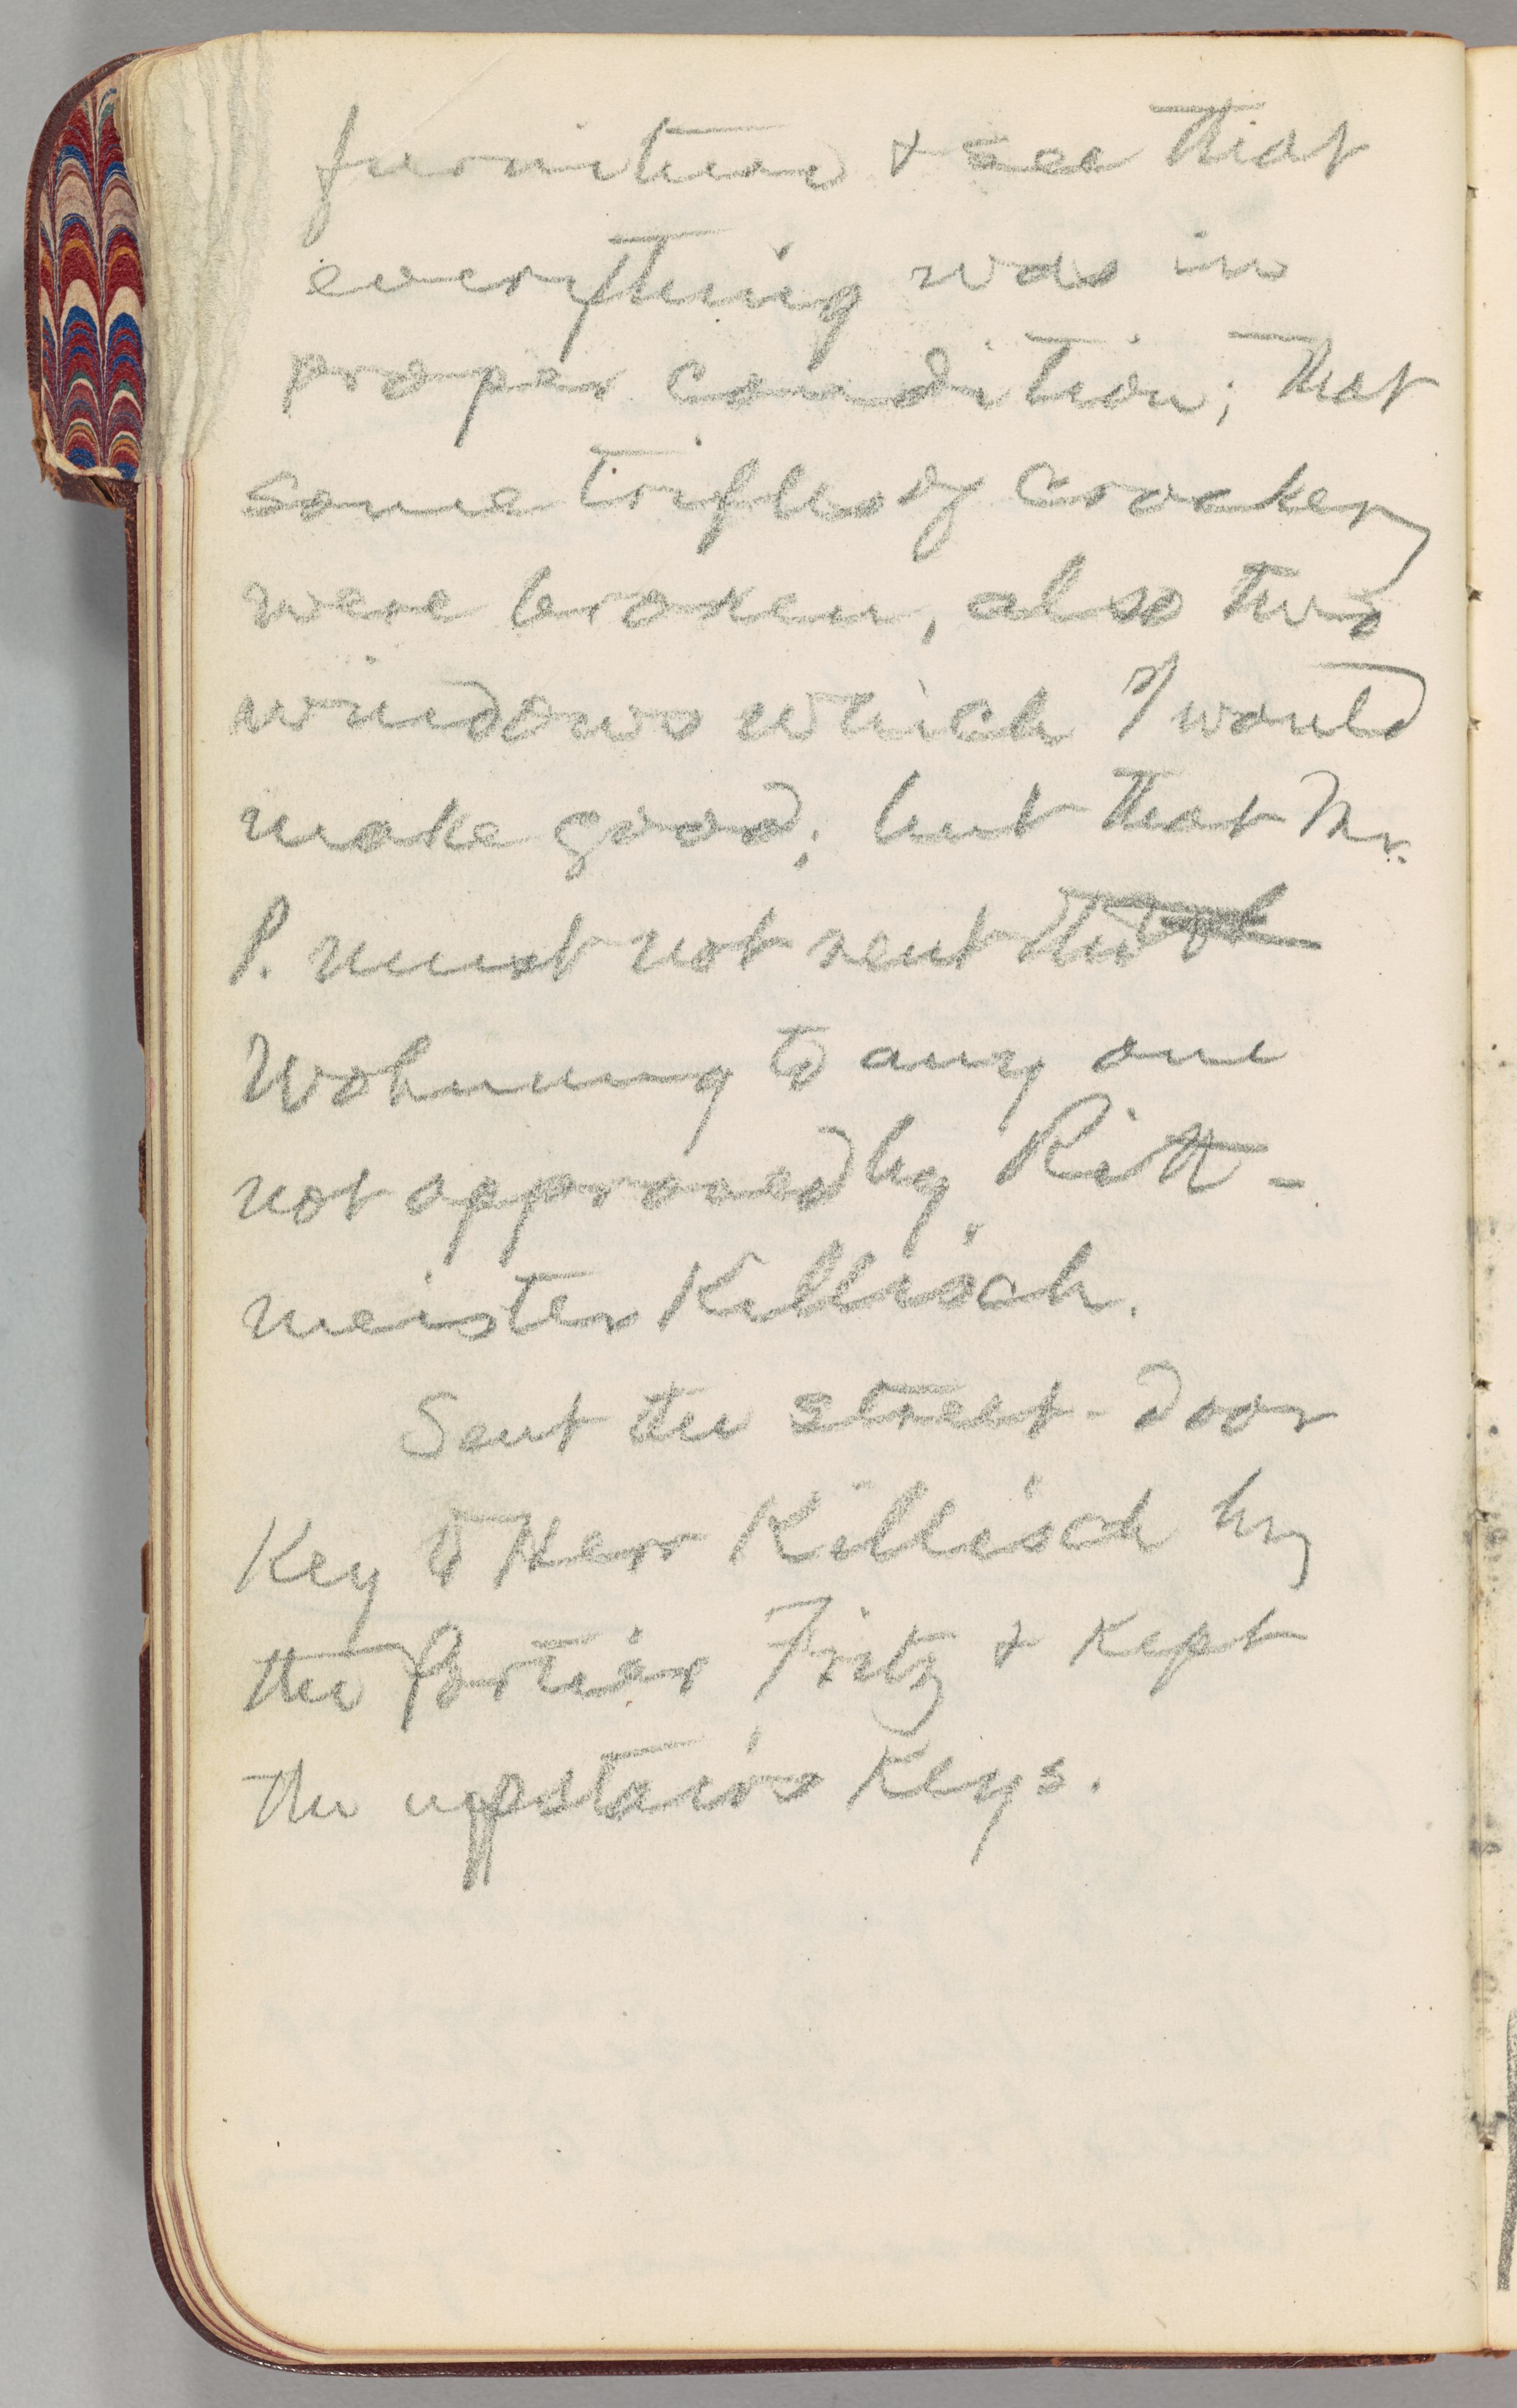 furniture & see that
everything was in
proper condition; that
some trifles of crockery
were broken, also two
windows which I would
make good; but that Mr.
P. must not rent the
Wohnung to any one
not approved by Ritt-
meister Killisch.
Sent the street-door
Key to Herr Killisch by
the Portier Fritz & kept
the upstairs keys.